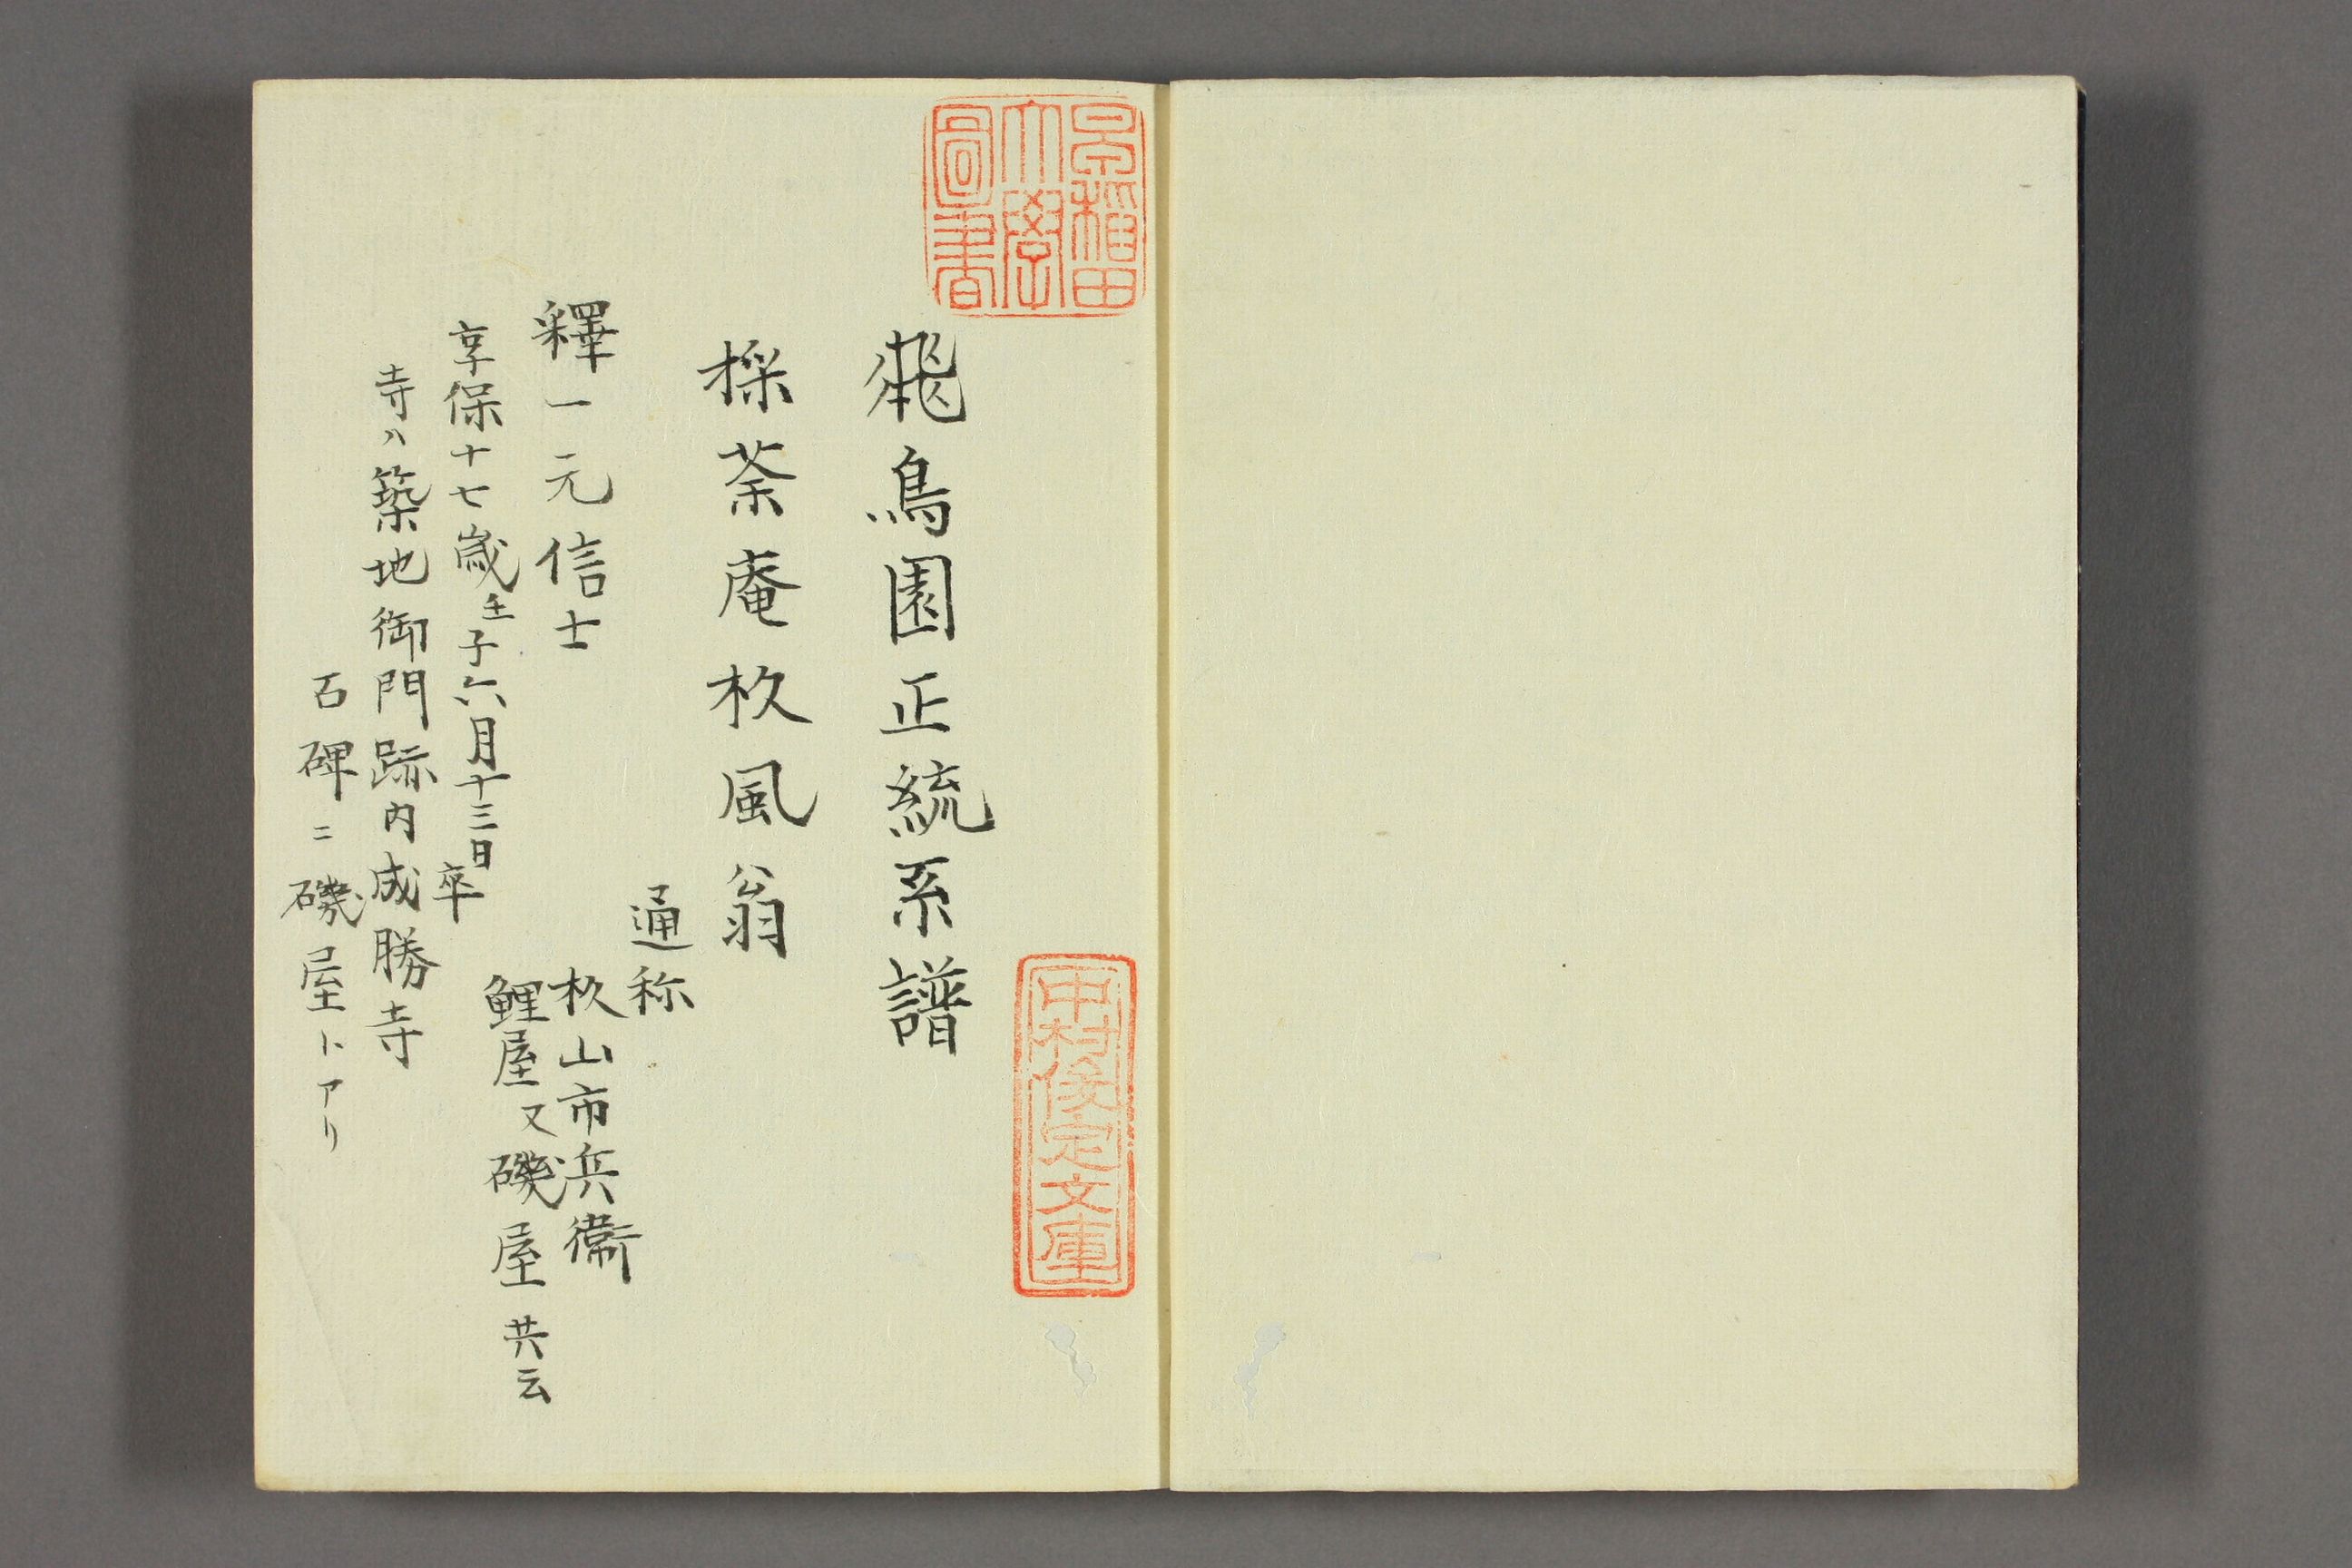 早稲田
大學
圖書
飛鳥園正統系譜
中村俊定文庫
採荼庵杦風翁
通称
杦山市兵衛
鯉屋又磯屋共云
釋一元信士
享保十七歳壬子六月十三日卒
寺ハ築地御門跡内成勝寺
石碑ニ磯屋トアリ